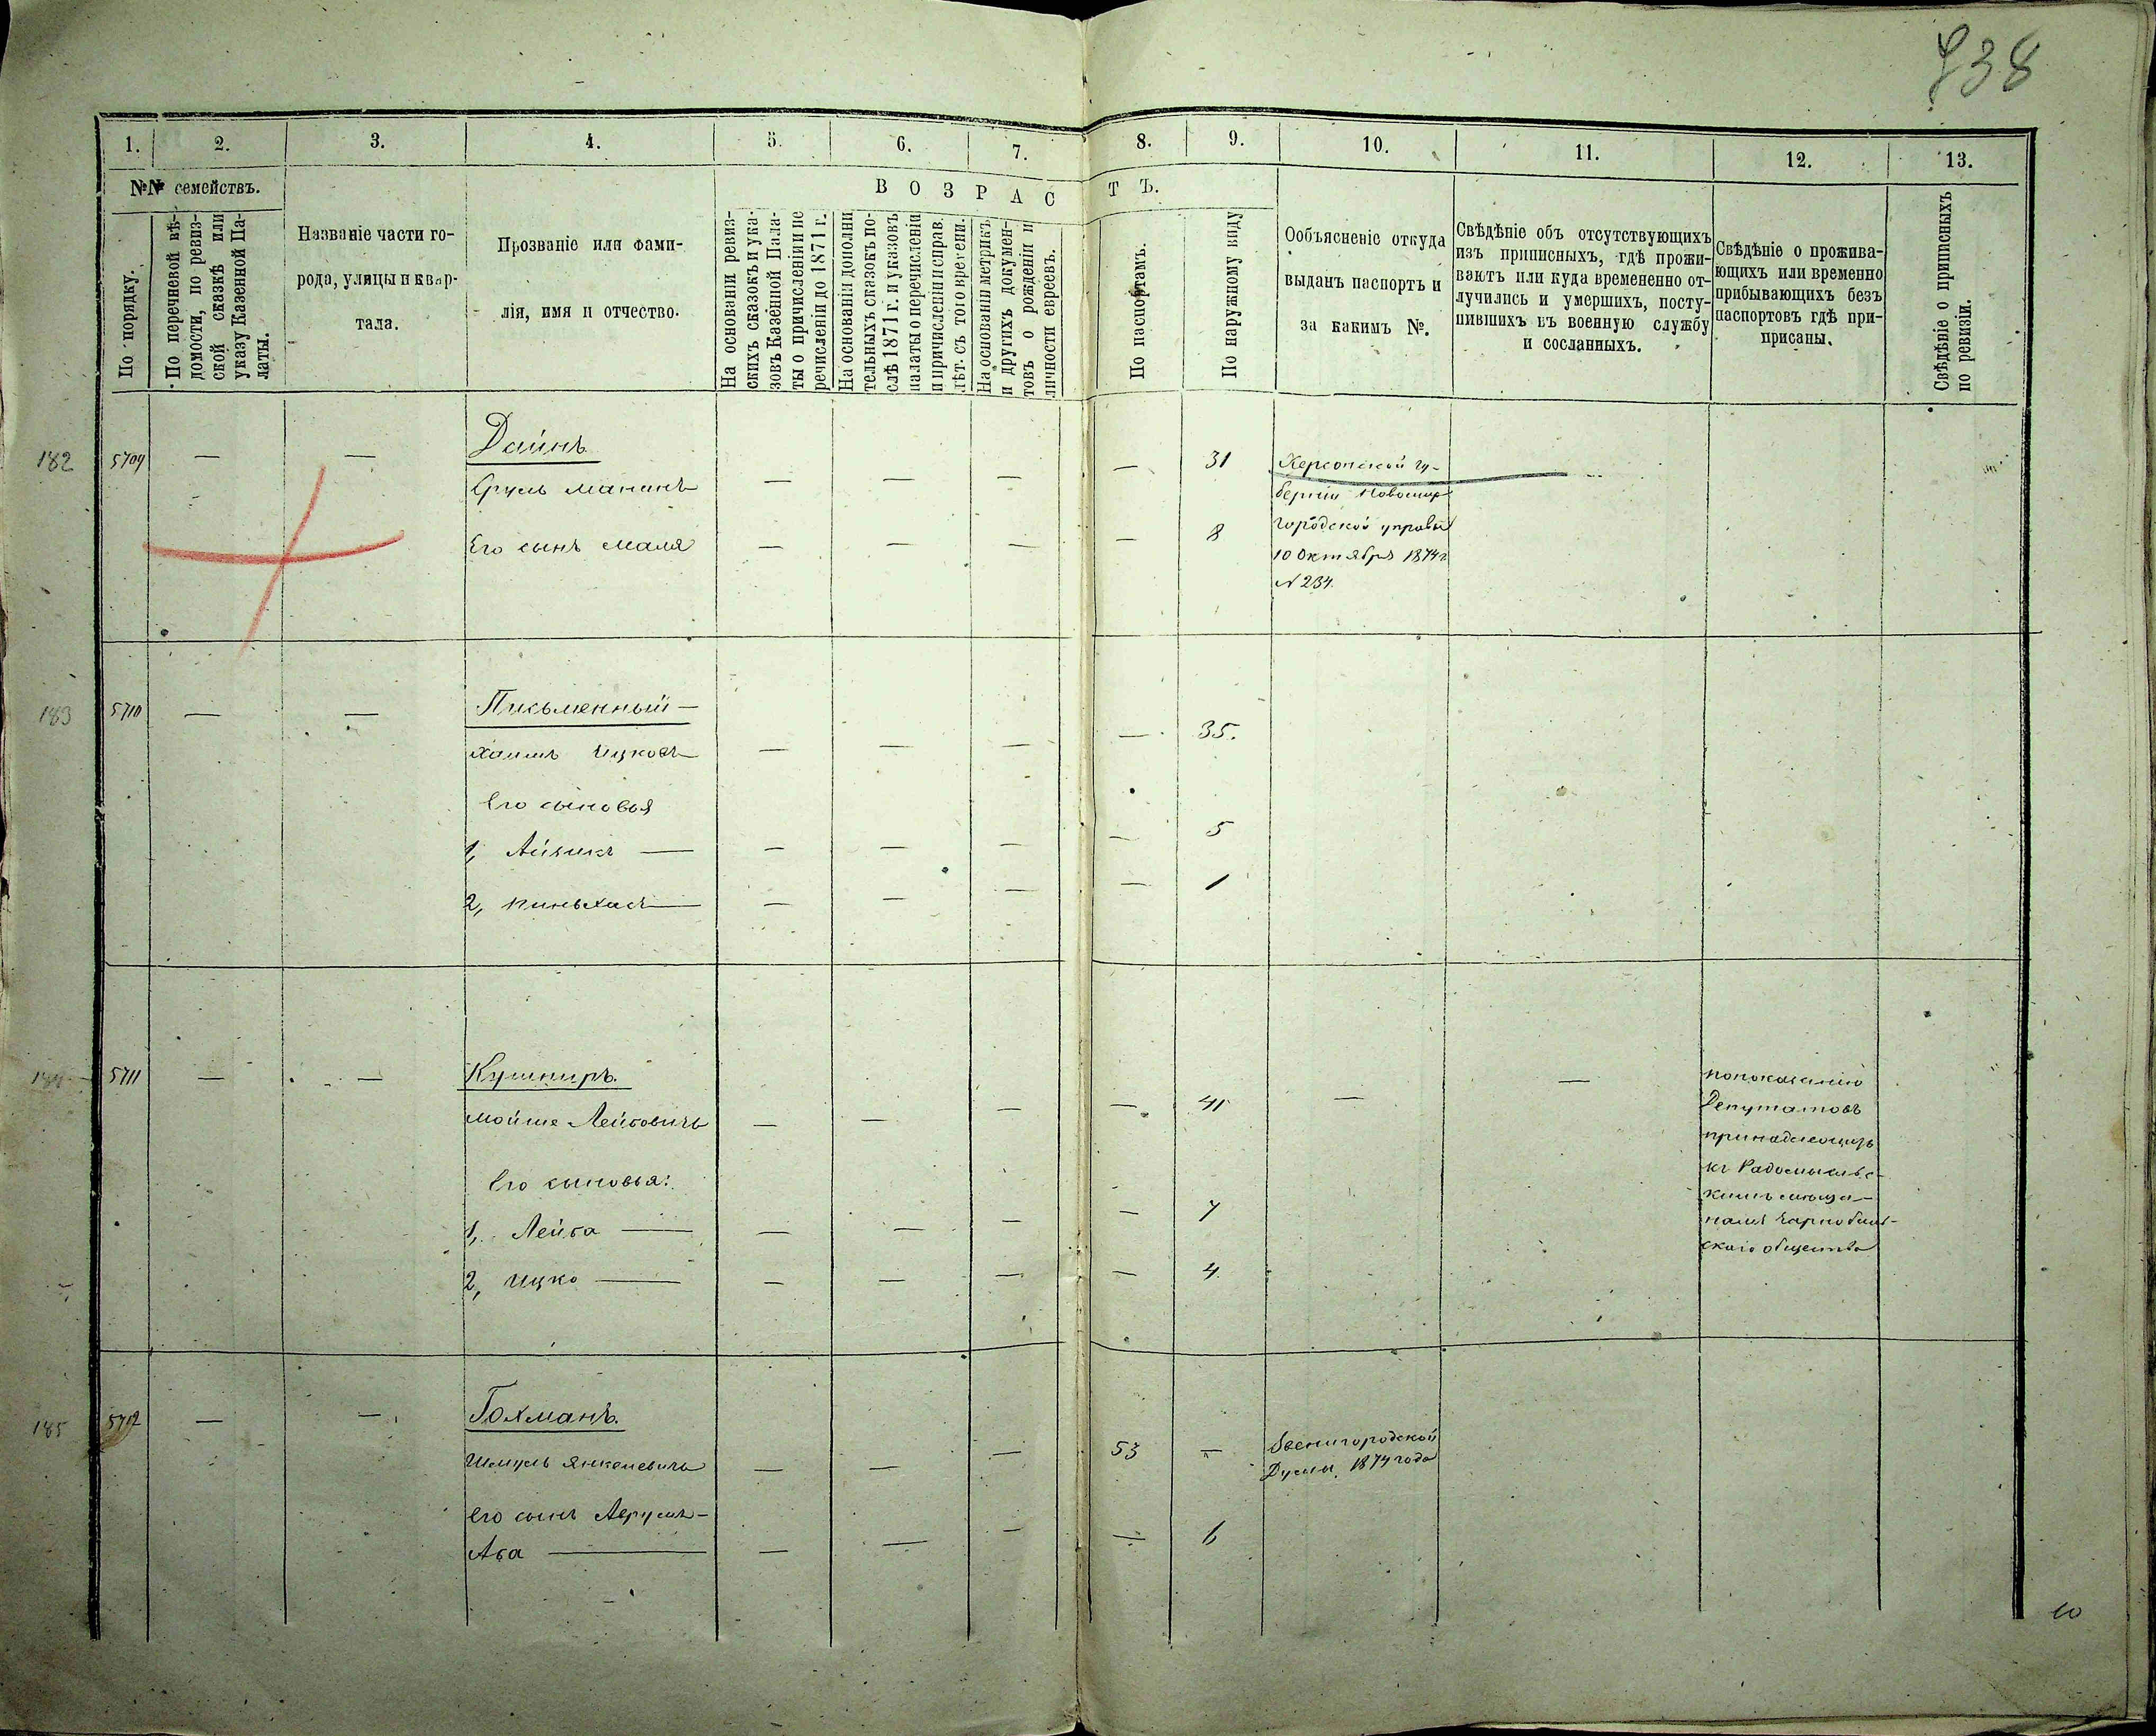 738
1. 2. 3. 4. 5. 6. 7. 8. 9. 10. 11. 12. 13.
№№ семействъ.
По порядку.
По перечневой вѣ-
домости, по ревиз-
ской сказкѣ или
указу Казенной Па-
латы.
Названіе части го-
рода, улицы и квар-
тала.
Прозваніе или фами-
лія, имя и отчество.
ВОЗРАСТЪ.
На основаніи ревиз-
скихъ сказокъ и ука-
зовъ Казенной Пала-
ты о причисленіи и пе
речисленіи до 1871 г.
На основаніи дополни
тельныхъ сказокъ по-
слѣ 1871 г. и указовъ
палаты о перечисленіи
и причисленіи и справ.
лѣт. съ того времени.
На основаніи метрикъ
и другихъ докумен-
товъ о рожденіи и
личности евреевъ.
По паспортамъ.
По наружному виду
Ообъясненіе откуда
выданъ паспортъ и
за какимъ №.
Свѣдѣніе объ отсутствующихъ
изъ приписныхъ, гдѣ прожи-
ваютъ или куда временено от-
лучились и умершихъ, посту-
пившихъ въ военную службу
и сосланныхъ.
Свѣдѣніе о прожива-
ющихъ или временно
прибывающихъ безъ
паспортовъ гдѣ при-
присаны.
Свѣдѣніе о приписныхъ
по ревизіи.
182 5709 — — Даинъ
Сруль Мананъ — — — — 31
Его сынъ Маля — — — — 8
Херсонской гу-
берніи Новомир
городской управы
10 Октября 1874 г
№ 234.
183 5710 — — Письменный —
Хаимъ Ицковъ — — — — 35.
Его сыновья
1, Айзикъ — — — — — 5
2, Пиньхасъ — — — — — 1
184 5711 — — Кушниръ.
Мойше Лейбовичъ — — — — 41 — —
Его сыновья:
1, Лейба — — — — — 7
2, Ицко — — — — — 4
по показанію
Депутатовъ
принадлежитъ
къ Радомысльс-
кимъ мѣща-
намъ Чарнобыль-
скаго общества
185 5712 — — Гохманъ.
Шмуль Янкелевичъ — — — 53 —
Звенигородской
Думы. 1874 года
Его сынъ Аврумъ-
Аба — — — — — 6
10